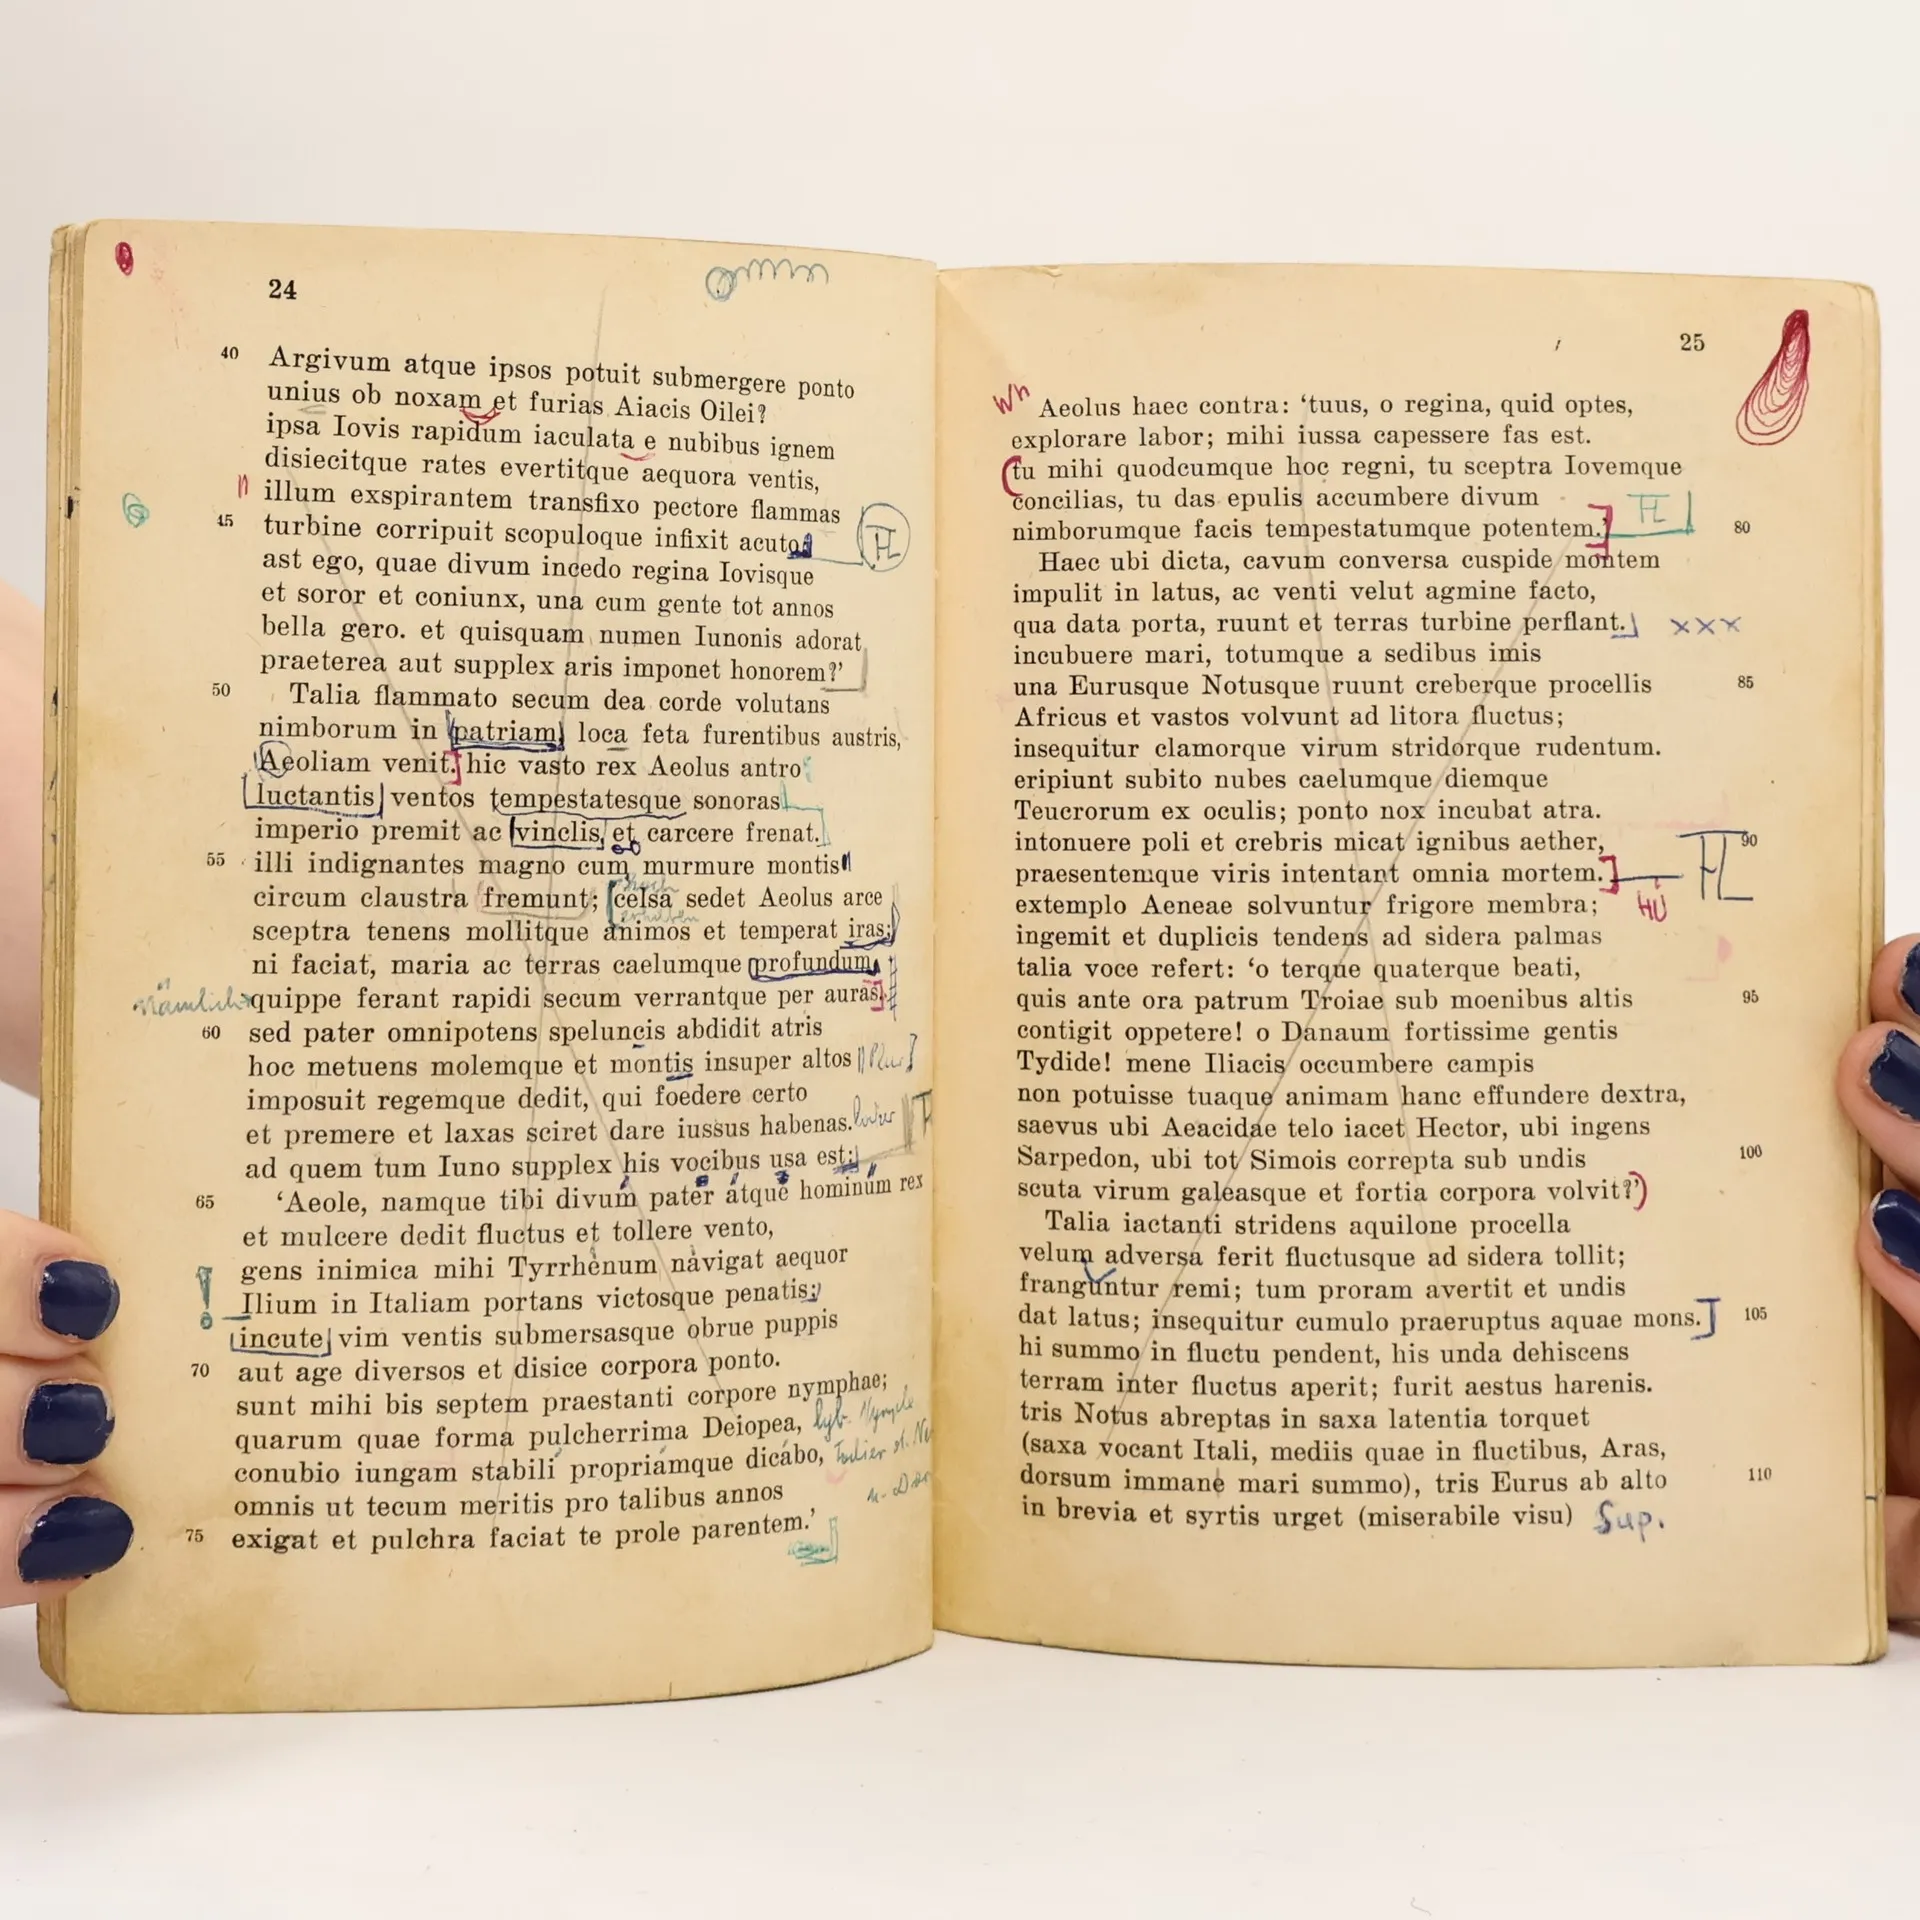 24
40 Argivum atque ipsos potuit submergere ponto
unius ob noxam et furias Aiacis Oilei?
ipsa Iovis rapidum iaculata e nubibus ignem
disiecitque rates evertitque aequora ventis,
illum exspirantem transfixo pectore flammas
45 turbine corripuit scopuloque infixit acuto. FL
ast ego, quae divum incedo regina Iovisque
et soror et coniunx, una cum gente tot annos
bella gero. et quisquam numen Iunonis adorat
praeterea aut supplex aris imponet honorem?’
50 Talia flammato secum dea corde volutans
nimborum in patriam, loca feta furentibus austris,
Aeoliam venit. hic vasto rex Aeolus antro
luctantis ventos tempestatesque sonoras
imperio premit ac vinclis et carcere frenat.
55 illi indignantes magno cum murmure montis
circum claustra fremunt; celsa sedet Aeolus arce
sceptra tenens mollitque animos et temperat iras;
ni faciat, maria ac terras caelumque profundum
nämlich quippe ferant rapidi secum verrantque per auras.
60 sed pater omnipotens speluncis abdidit atris
hoc metuens molemque et montis insuper altos
imposuit regemque dedit, qui foedere certo
et premere et laxas sciret dare iussus habenas.
ad quem tum Iuno supplex his vocibus usa est:
65 ‘Aeole, namque tibi divum pater atque hominum rex
et mulcere dedit fluctus et tollere vento,
gens inimica mihi Tyrrhenum navigat aequor
! Ilium in Italiam portans victosque penatis;
incute vim ventis submersasque obrue puppis
70 aut age diversos et disice corpora ponto.
sunt mihi bis septem praestanti corpore nymphae;
quarum quae forma pulcherrima Deiopea,
conubio iungam stabili propriamque dicabo,
omnis ut tecum meritis pro talibus annos
75 exigat et pulchra faciat te prole parentem.’
25
Wh Aeolus haec contra: ‘tuus, o regina, quid optes,
explorare labor; mihi iussa capessere fas est.
tu mihi quodcumque hoc regni, tu sceptra Iovemque
concilias, tu das epulis accumbere divum
nimborumque facis tempestatumque potentem.’ FL 80
Haec ubi dicta, cavum conversa cuspide montem
impulit in latus, ac venti velut agmine facto,
qua data porta, ruunt et terras turbine perflant. xxx
incubuere mari, totumque a sedibus imis
una Eurusque Notusque ruunt creberque procellis 85
Africus et vastos volvunt ad litora fluctus;
insequitur clamorque virum stridorque rudentum.
eripiunt subito nubes caelumque diemque
Teucrorum ex oculis; ponto nox incubat atra.
intonuere poli et crebris micat ignibus aether, 90
praesentemque viris intentant omnia mortem. FL
extemplo Aeneae solvuntur frigore membra; HÜ
ingemit et duplicis tendens ad sidera palmas
talia voce refert: ‘o terque quaterque beati,
quis ante ora patrum Troiae sub moenibus altis 95
contigit oppetere! o Danaum fortissime gentis
Tydide! mene Iliacis occumbere campis
non potuisse tuaque animam hanc effundere dextra,
saevus ubi Aeacidae telo iacet Hector, ubi ingens
Sarpedon, ubi tot Simois correpta sub undis 100
scuta virum galeasque et fortia corpora volvit?’
Talia iactanti stridens aquilone procella
velum adversa ferit fluctusque ad sidera tollit;
franguntur remi; tum proram avertit et undis
dat latus; insequitur cumulo praeruptus aquae mons. 105
hi summo in fluctu pendent, his unda dehiscens
terram inter fluctus aperit; furit aestus harenis.
tris Notus abreptas in saxa latentia torquet
(saxa vocant Itali, mediis quae in fluctibus, Aras,
dorsum immane mari summo), tris Eurus ab alto 110
in brevia et syrtis urget (miserabile visu) Sup.